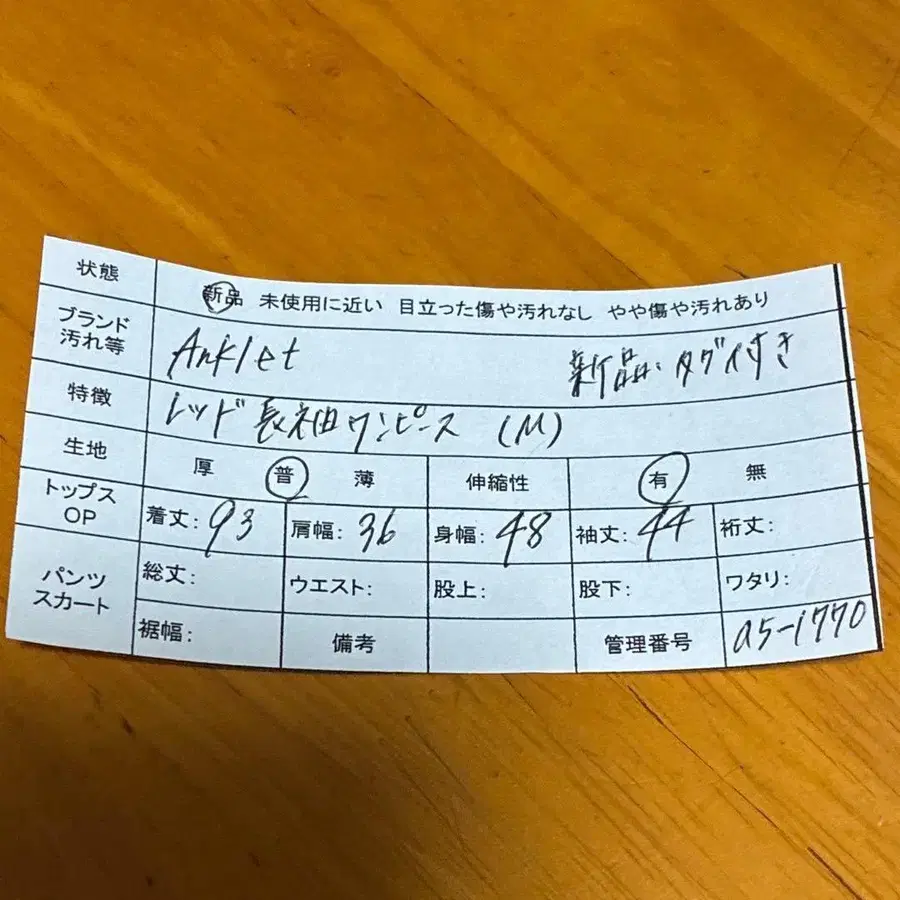 状態 新品 未使用に近い 目立った傷や汚れなし やや傷や汚れあり
ブランド
汚れ等 Anklet 新品:タグ付き
特徴 レッド長袖ワンピース (M)
生地 厚 普 薄 伸縮性 有 無
トップス
OP 着丈: 93 肩幅: 36 身幅: 48 袖丈: 44 裄丈:
パンツ
スカート 総丈: ウエスト: 股上: 股下: ワタリ:
裾幅: 備考 管理番号 a5-1770